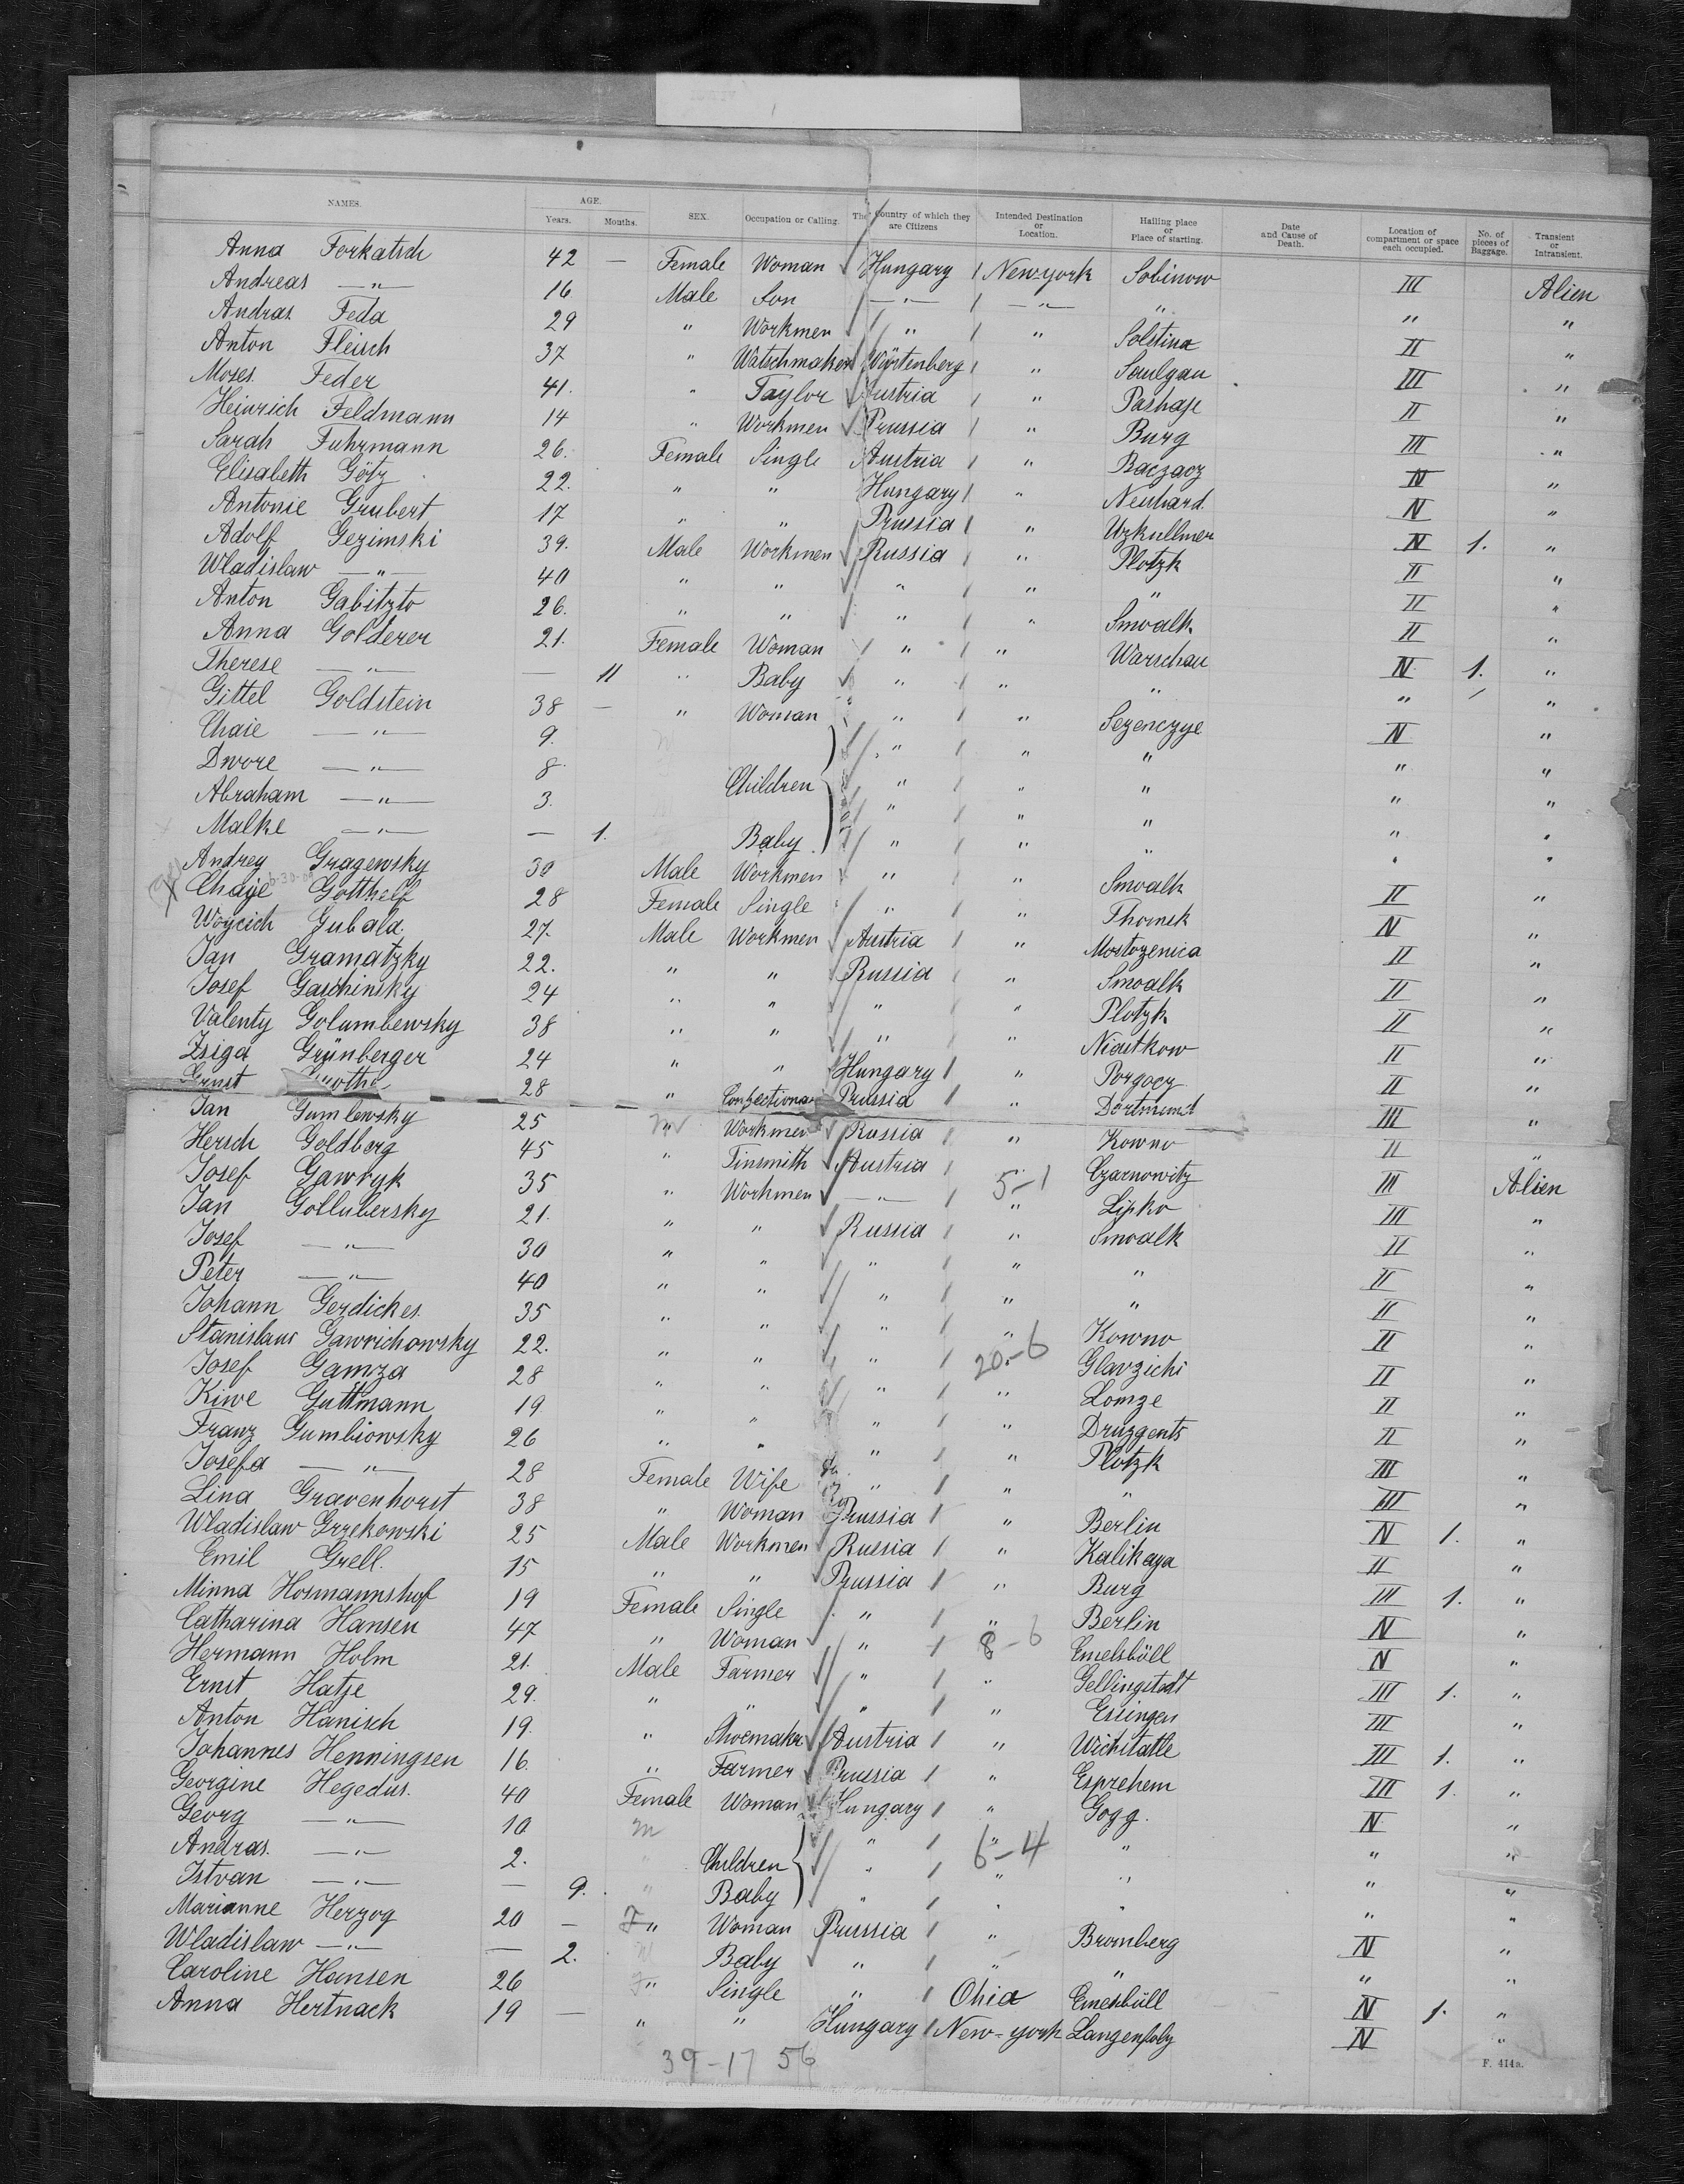 NAMES. AGE. Years. Months. SEX. Occupation or Calling. The Country of which they are Citizens Intended Destination or Location. Hailing place or Place of starting. Date and Cause of Death. Location of compartment or space each occupied. No. of pieces of Baggage. Transient or Intransient.
Anna Forkatsch 42 — Female Woman Hungary New york Sobinow III Alien
Andreas —"— 16 Male Son —"— —"— " " "
Andras Feda 29 " Workmen " " Solstina II "
Anton Fleisch 37 " Watschmaker Würtenberg " Saulgau III "
Moses Feder 41. " Taylor Austria " Pashaje II "
Heinrich Feldmann 14 " Workmen Prussia " Burg III "
Sarah Fuhrmann 26. Female Single Austria " Baczacz N "
Elisabeth Götz 22. " " Hungary " Neuhard. N "
Antonie Grubert 17 " " Prussia " Uzkullmen N 1. "
Adolf Gezimski 39. Male Workmen Russia " Plotzk II "
Wladislaw —"— 40 " " " " " II "
Anton Gabitzto 26. " " " " Smoalk II "
Anna Golderer 21. Female Woman " " Warschau N 1. "
Therese —"— — 11 " Baby " " " " "
Gittel Goldstein 38 — " Woman " " Sezenczye N "
Chaie —"— 9. " " " " "
Dwore —"— 8. Children " " " " "
Abraham —"— 3. " " " " "
Malke —"— — 1. Baby " " " " "
Andrey Gragewsky 30 Male Workmen " " Smoalk II "
Chaje Gotthelf 28 Female Single " " Thomsk N "
Woycich Gubala. 27. Male Workmen Austria " Mostozenica II "
Jan Gramatzky 22. " " Russia " Smoalk II "
Josef Gaschinsky 24 " " " " Plotzk II "
Valenty Golumbewsky 38 " " " " Niautkow II "
Zsiga Grünberger 24 " " Hungary " Porgocz II "
Ernst Grothe 28 " Confectionar Prussia " Dortmund III "
Jan Gumlewsky 25 " Workmen Russia " Kowno II "
Hersch Goldberg 45 " Tinsmith Austria " Czarnowitz III Alien
Josef Gawryk 35 " Workmen —"— 5-1 " Lipko III "
Jan Gollubersky 21. " " Russia " Smoalk II "
Josef —"— 30 " " " " " II "
Peter —"— 40 " " " " " II "
Johann Gerdickes. 35 " " " " Kowno II "
Stanislaus Gawrichowsky 22. " " " 20-6 Glavzichi II "
Josef Gamza 28 " " " " Lomze II "
Kiwe Guttmann 19 " " " " Druzgents II "
Franz Gumbiowsky 26 " " " " Plotzk III "
Josefa —"— 28 Female Wife " " " III "
Lina Gravenhorst 38 " Woman Prussia " Berlin N 1. "
Wladislaw Grzekowski 25 Male Workmen Russia " Kalikaya II "
Emil Grell. 15 " " Prussia " Burg III 1. "
Minna Hosmannshof 19 Female Single " " Berlin N "
Catharina Hansen 47 " Woman " 8-6 Emelsbüll N "
Hermann Holm 21. Male Farmer " " Gellingstedt III 1. "
Ernst Hatje 29. " " " " Essingen III "
Anton Hanisch 19. " Shoemaker Austria " Wichstattle III 1. "
Johannes Henningsen 16. " Farmer Prussia " Esprehem III 1. "
Georgine Hegedus. 40 Female Woman Hungary " Gogg. N "
Georg —"— 10 m " " " " "
Andras. —"— 2. " Children " 6-4 " " "
Istvan —"— — 9. " Baby " " " " "
Marianne Herzog 20 — F " Woman Prussia " Bromberg N "
Wladislaw —"— — 2. Baby " " " " "
Caroline Hansen 26 F " Single " Ohio Emesbüll N 1. "
Anna Hertnack 19 — " " Hungary New-york N "
39-17 56
F. 414a.